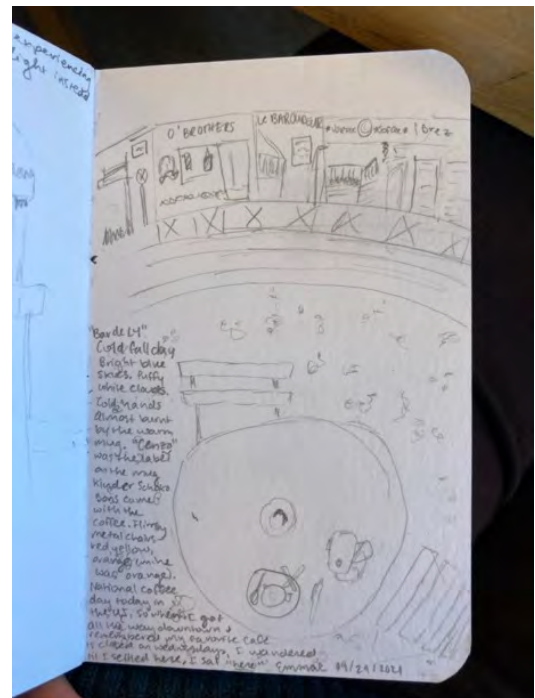 experiencing
light instead
O'BROTHERS
LE BAROUDEUR
"Bar de L4"
Cold fall day
Bright blue
skies. Puffy
white clouds.
Cold hands
almost burnt
by the warm
mug. "Cenzo"
was the label
on the mug
Kinder Schoko
Bons came
with the
coffee. Flimsy
metal chairs
red, yellow,
orange (mine
was orange).
National coffee
day today in
the US, so when I got
all the way downtown &
remembered my favorite cafe
is closed on Wednesdays, I wandered
til I settled here, I sat "here" Emmak 09/29/2021